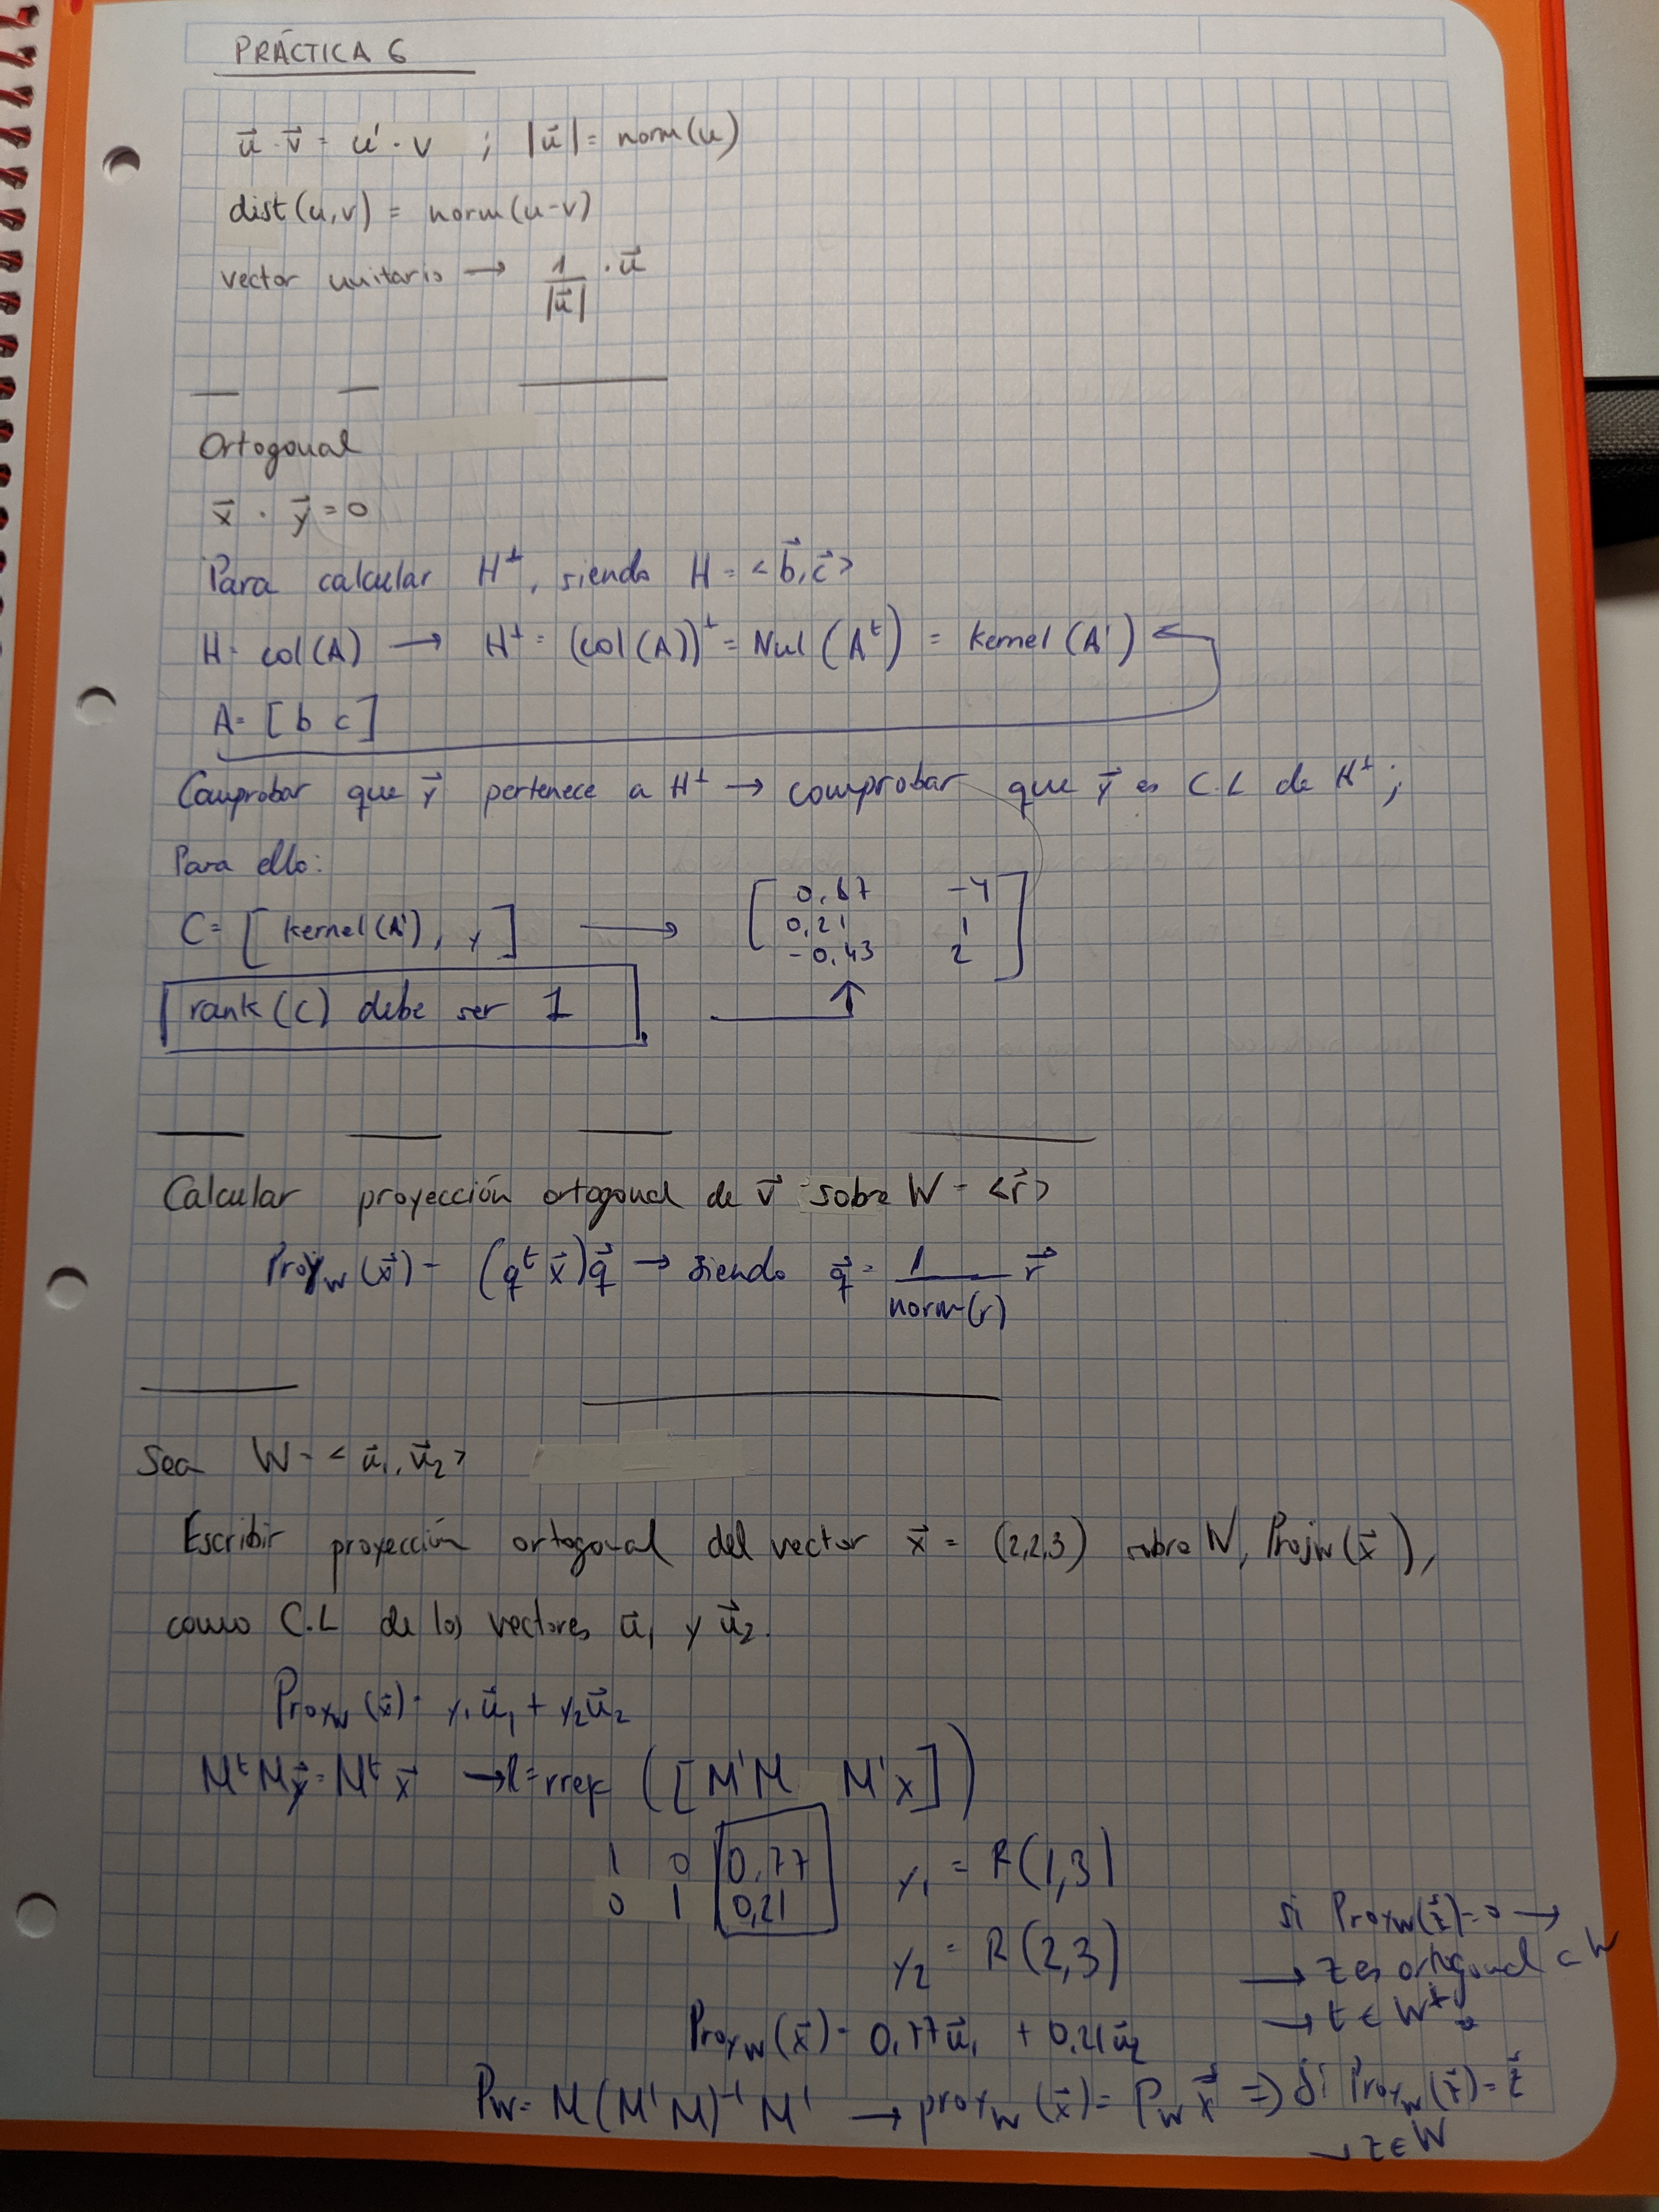 PRÁCTICA 6
u⃗ · v⃗ = u' · v ; |u⃗| = norm(u)
dist(u,v) = norm(u-v)
vector unitario → 1/|u⃗| · u⃗
Ortogonal
x⃗ · y⃗ = 0
Para calcular H^⊥, siendo H = <b⃗, c⃗>
H = col(A) → H^⊥ = (col(A))^⊥ = Nul(A^t) = kernel(A')
A = [b c]
Comprobar que y⃗ pertenece a H^⊥ → comprobar que y⃗ es C.L de H^⊥;
Para ello:
C = [kernel(A'), y] →
0,87 -4
0,21 1
-0,43 2
rank(C) debe ser 1
Calcular proyección ortogonal de v⃗ sobre W = <r⃗>
Proy_W(x⃗) = (q^t x⃗)q⃗ → siendo q⃗ = 1/norm(r) r⃗
Sea W = <u⃗₁, u⃗₂>
Escribir proyección ortogonal del vector x⃗ = (2,2,3) sobre W, Proj_W(x⃗),
como C.L de los vectores u⃗₁ y u⃗₂.
Proy_W(x⃗) = y₁u⃗₁ + y₂u⃗₂
M^t M y⃗ = M^t x⃗ → R = rref([M'M M'x])
1 0 0,77
0 1 0,21
y₁ = R(1,3)
y₂ = R(2,3)
Proy_W(x⃗) = 0,77u⃗₁ + 0,21u⃗₂
si Proy_W(z⃗) = 0 →
→ z es ortogonal a W
→ z ∈ W^⊥
P_W = M(M'M)^-1 M' → proy_W(x⃗) = P_W x⃗ ⇒ Si Proy_W(z⃗) = z⃗
→ z ∈ W